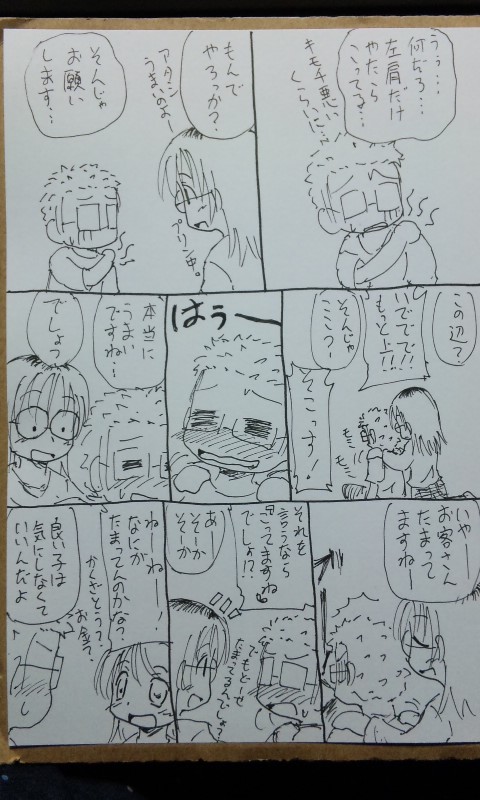 うぅ…
何だろ…
左肩だけ
やたら
こってる…
キモチ悪い
くらいに…
もんで
やろっか？
アタシ
うまいのよー
プリン中。
そんじゃ
お願い
します…
この辺？
いでででで
もっと上!!!
そんじゃ
ここっ？
そこっす！
モミ
モミ
はぅー
本当に
うまい
ですね…
でしょっ
いやー
お客さん
たまって
ますねー
それを
言うなら
「こってますね」
でしょ!?
あー
そーか
そーか
でもどーせ
たまってるんでしょ？
ねーねー！
なにが
たまってんのかなっ？
かくざとう？
お金？
良い子は
気にしなくて
いいんだよ